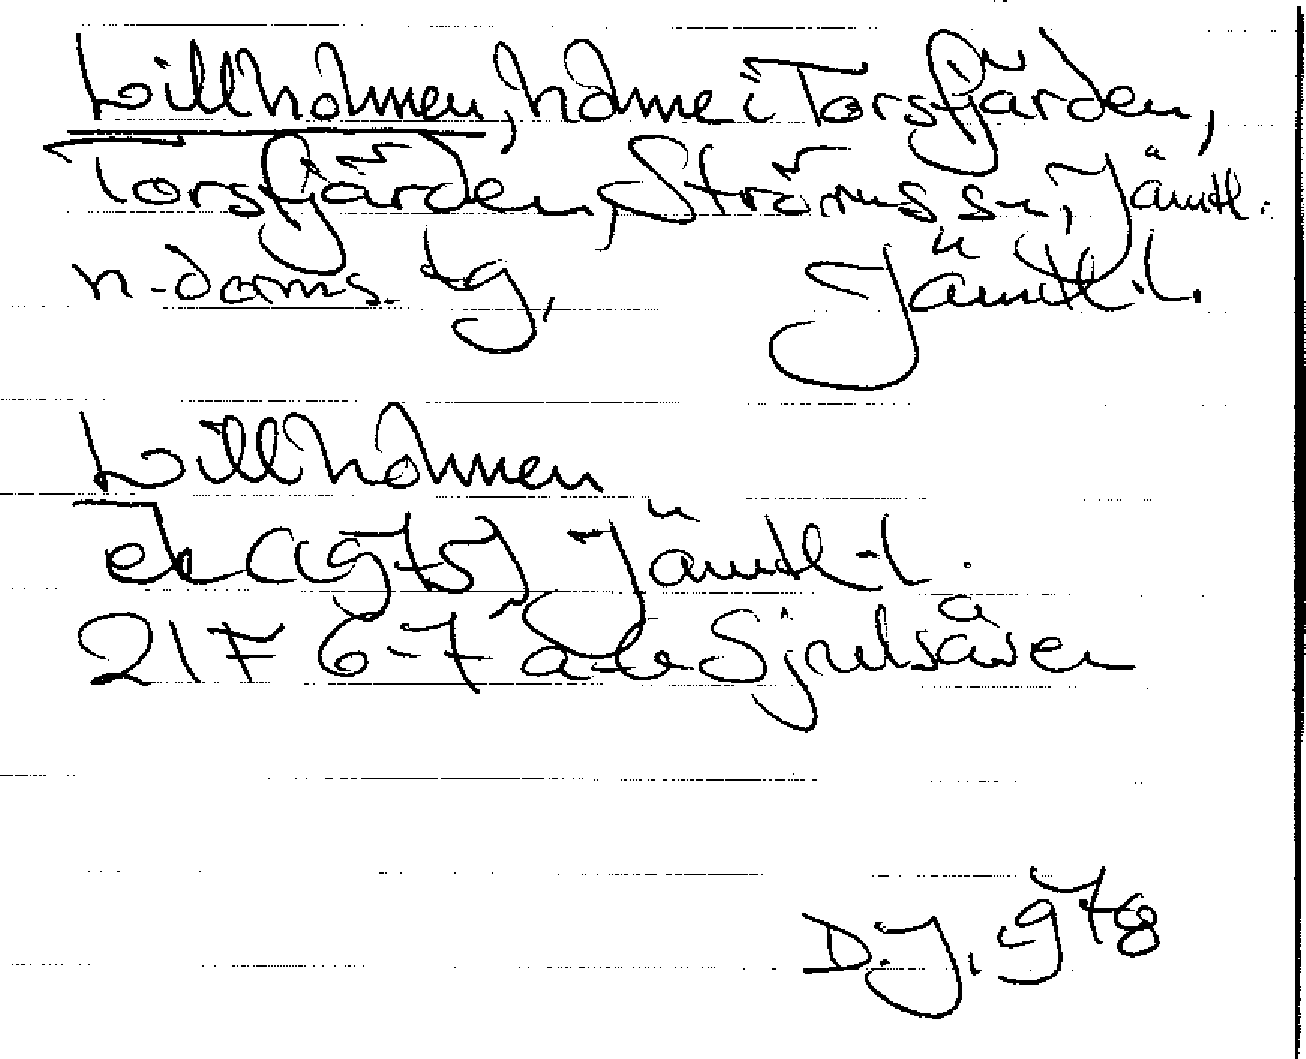 Lillholmen, holme i Torsfjärden,
Torsfjärden, Ströms sn, Jämtl.
n. doms. tg, Jämtl. l.
Lillholmen
Ek (1975) Jämtl. l.
21F 6-7 a-b Sjulsåsen
D.J. 978